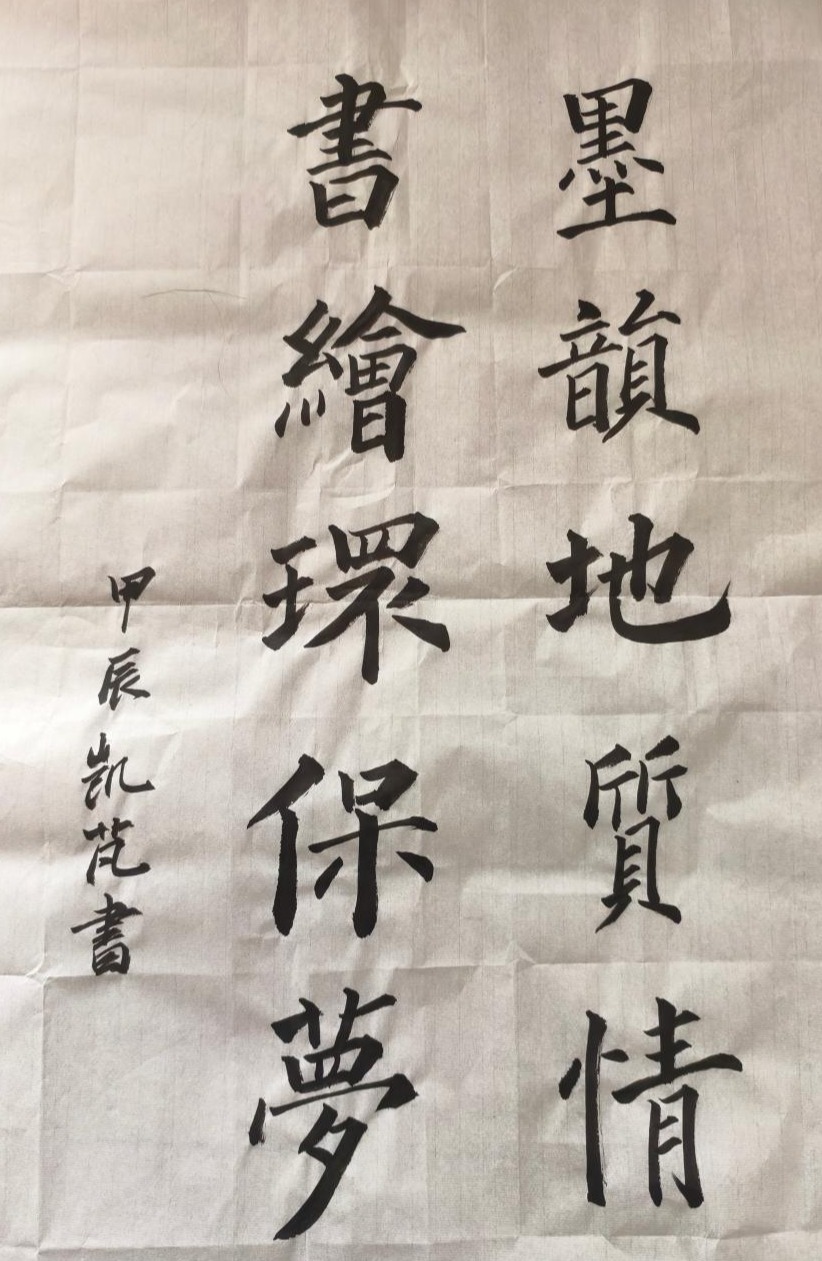 墨韻地質情
書繪環保夢
甲辰凱芃書